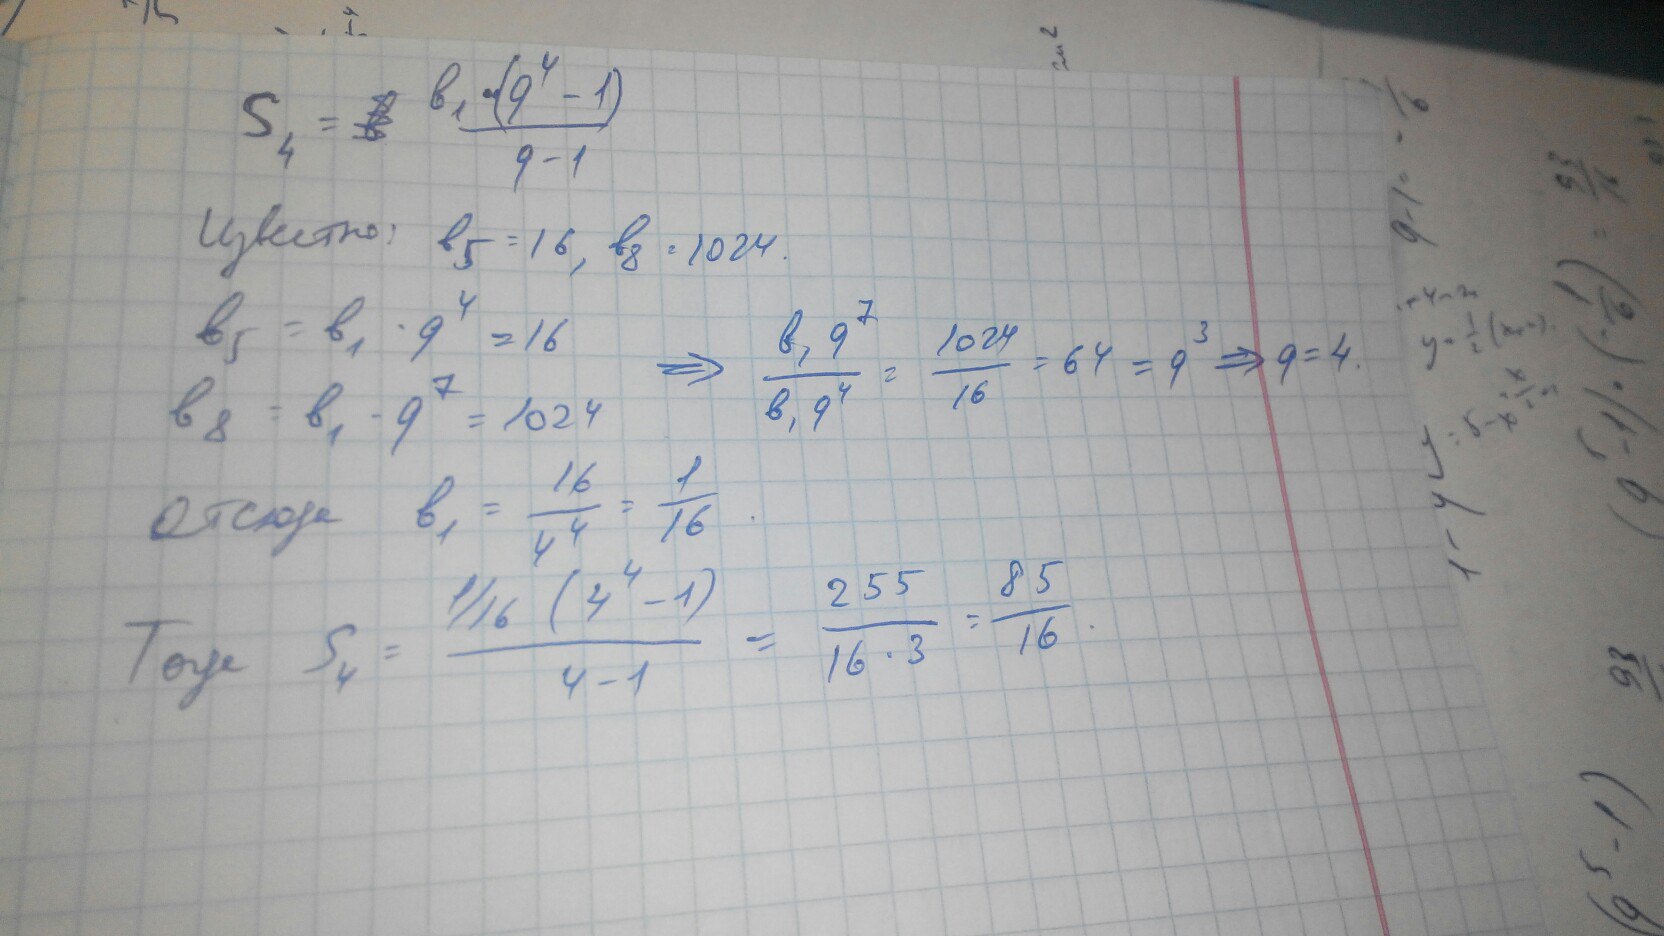 S₄ = b₁·(q⁴ - 1) / (q - 1)
Известно: b₅ = 16, b₈ = 1024.
b₅ = b₁ · q⁴ = 16
b₈ = b₁ · q⁷ = 1024 ⇒ b₁q⁷ / b₁q⁴ = 1024/16 = 64 = q³ ⇒ q = 4.
Отсюда b₁ = 16/4⁴ = 1/16.
Тогда S₄ = 1/16 (4⁴ - 1) / (4 - 1) = 255 / (16 · 3) = 85/16.